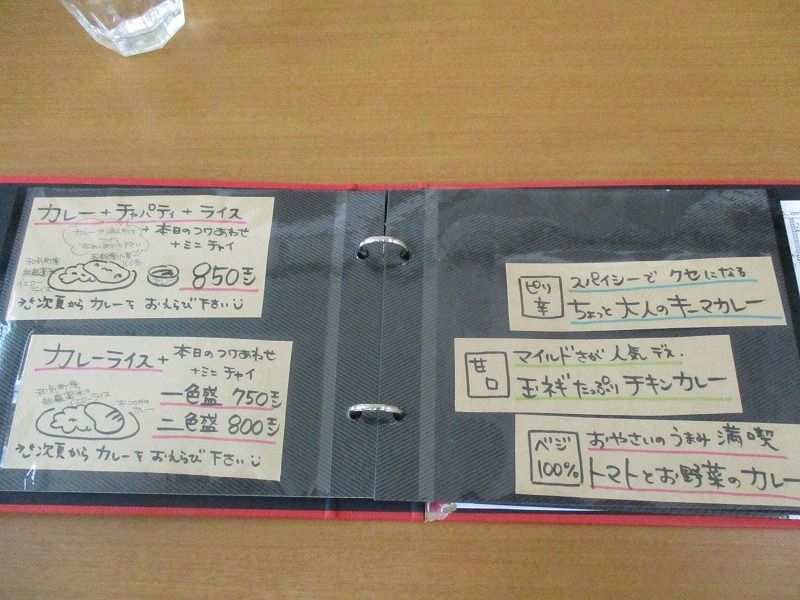 カレー+チャパティ+ライス
+本日のつけあわせ
+ミニ チャイ
850エン
次頁から カレーを おえらび下さい
カレーライス+
本日のつけあわせ
+ミニ チャイ
和気町産
一色盛 750エン
二色盛 800エン
次頁から カレーを おえらび下さい
ピリ
辛
スパイシーで クセになる
ちょっと大人のキーマカレー
甘
口
マイルドさが 人気デス.
玉ネギたっぷりチキンカレー
ベジ
100%
おやさいのうまみ 満喫
トマトとお野菜のカレー